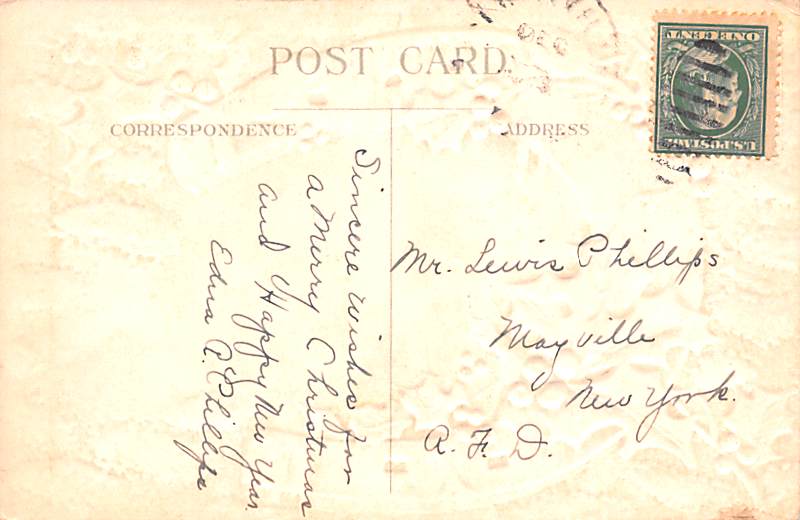 POST CARD
CORRESPONDENCE
ADDRESS
ONE CENT
U.S. POSTAGE
Sincere wishes for
a Merry Christmas
and Happy New Year.
Edna P. Phillips
Mr. Lewis Phillips
Mayville
New York.
R. F. D.